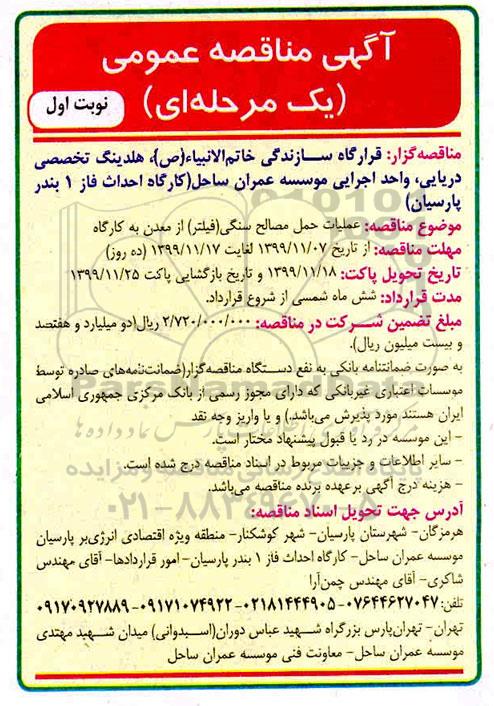 آگهی مناقصه عمومی
(یک مرحله‌ای)
نوبت اول
مناقصه‌گزار: قرارگاه سازندگی خاتم‌الانبیاء(ص)، هلدینگ تخصصی
دریایی، واحد اجرایی موسسه عمران ساحل(کارگاه احداث فاز ۱ بندر
پارسیان)
موضوع مناقصه: عملیات حمل مصالح سنگی(فیلتر) از معدن به کارگاه
مهلت مناقصه: از تاریخ ۱۳۹۹/۱۱/۰۷ لغایت ۱۳۹۹/۱۱/۱۷ (ده روز)
تاریخ تحویل پاکت: ۱۳۹۹/۱۱/۱۸ و تاریخ بازگشایی پاکت ۱۳۹۹/۱۱/۲۵
مدت قرارداد: شش ماه شمسی از شروع قرارداد.
مبلغ تضمین شرکت در مناقصه: ۲/۷۲۰/۰۰۰/۰۰۰ ریال(دو میلیارد و هفتصد
و بیست میلیون ریال).
به صورت ضمانتنامه بانکی به نفع دستگاه مناقصه‌گزار(ضمانت‌نامه‌های صادره توسط
موسسات اعتباری غیربانکی که دارای مجوز رسمی از بانک مرکزی جمهوری اسلامی
ایران هستند مورد پذیرش می‌باشد.) و یا واریز وجه نقد
- این موسسه در رد یا قبول پیشنهاد مختار است.
- سایر اطلاعات و جزییات مربوط در اسناد مناقصه درج شده است.
- هزینه درج آگهی برعهده برنده مناقصه می‌باشد.
آدرس جهت تحویل اسناد مناقصه:
هرمزگان- شهرستان پارسیان- شهر کوشکنار- منطقه ویژه اقتصادی انرژی‌بر پارسیان
موسسه عمران ساحل- کارگاه احداث فاز ۱ بندر پارسیان- امور قراردادها- آقای مهندس
شاکری- آقای مهندس چمن‌آرا
تلفن: ۰۷۶۴۴۶۲۷۰۴۷-۰۲۱۸۱۴۴۴۹۰۵-۰۹۱۷۱۰۷۴۹۲۲-۰۹۱۷۰۹۲۷۸۸۹
تهران- تهران‌پارس بزرگراه شهید عباس دوران(اسبدوانی) میدان شهید مهتدی
موسسه عمران ساحل- معاونت فنی موسسه عمران ساحل